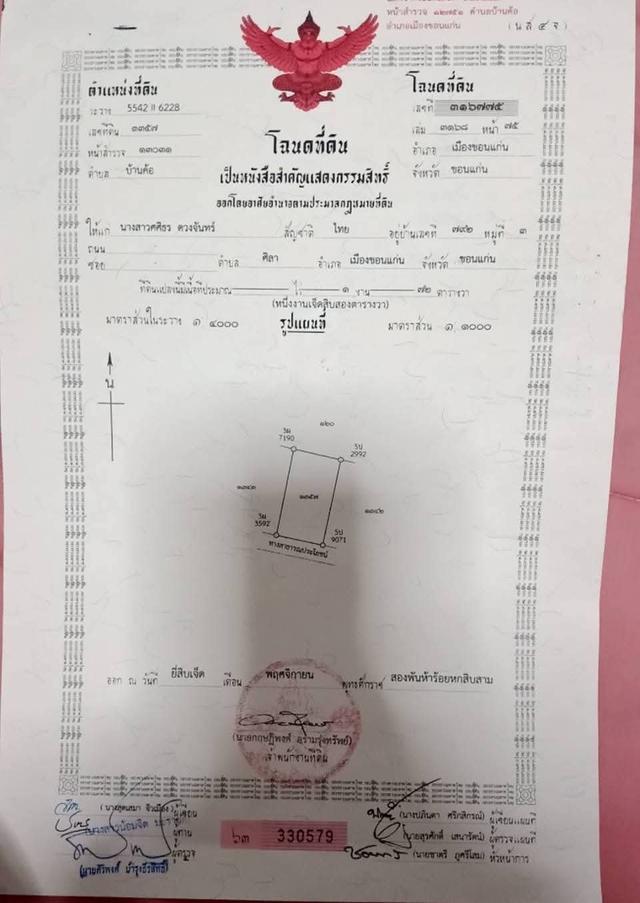 หน้าสำรวจ ๑๒๗๕๑ ตำบลบ้านค้อ
อำเภอเมืองขอนแก่น
(น.ส.๔ จ)
ตำแหน่งที่ดิน
ระวาง 5542 II 6228
เลขที่ดิน ๑๓๕๗
หน้าสำรวจ ๑๓๐๓๑
ตำบล บ้านค้อ
โฉนดที่ดิน
เลขที่ ๓๑๖๗๗๕
เล่ม ๓๑๖๘ หน้า ๗๕
อำเภอ เมืองขอนแก่น
จังหวัด ขอนแก่น
โฉนดที่ดิน
เป็นหนังสือสำคัญแสดงกรรมสิทธิ์
ออกโดยอาศัยอำนาจตามประมวลกฎหมายที่ดิน
ให้แก่ นางสาวศศิธร ดวงจันทร์ สัญชาติ ไทย อยู่บ้านเลขที่ ๗๙๒ หมู่ที่ ๓
ถนน
ซอย ตำบล ศิลา อำเภอ เมืองขอนแก่น จังหวัด ขอนแก่น
ที่ดินแปลงนี้มีเนื้อที่ประมาณ ไร่ ๑ งาน ๗๒ ตารางวา
(หนึ่งงานเจ็ดสิบสองตารางวา)
มาตราส่วนในระวาง ๑ ๔๐๐๐ รูปแผนที่ มาตราส่วน ๑ ๑๐๐๐
น
๑๒๐
7190
2992
๑๓๕๗
3592
9071
ทางสาธารณประโยชน์
ออก ณ วันที่ ยี่สิบเจ็ด เดือน พฤศจิกายน พุทธศักราช สองพันห้าร้อยหกสิบสาม
เจ้าพนักงานที่ดิน
ผู้เขียน
ผู้ทาน
ผู้ตรวจ
๖๓ 330579
ผู้เขียนแผนที่
(นายสุรศักดิ์ เสนารัตน์) ผู้ตรวจแผนที่
หัวหน้าการ